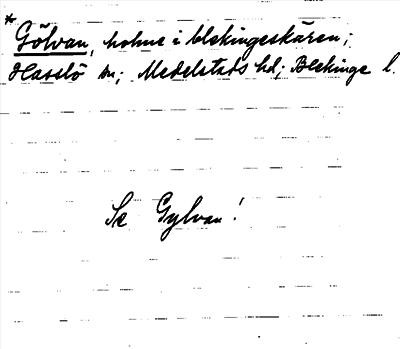 * Gölvan, holme i blekingeskären;
Hasslö sn; Medelstads hd; Blekinge l.
Se Gylvan!